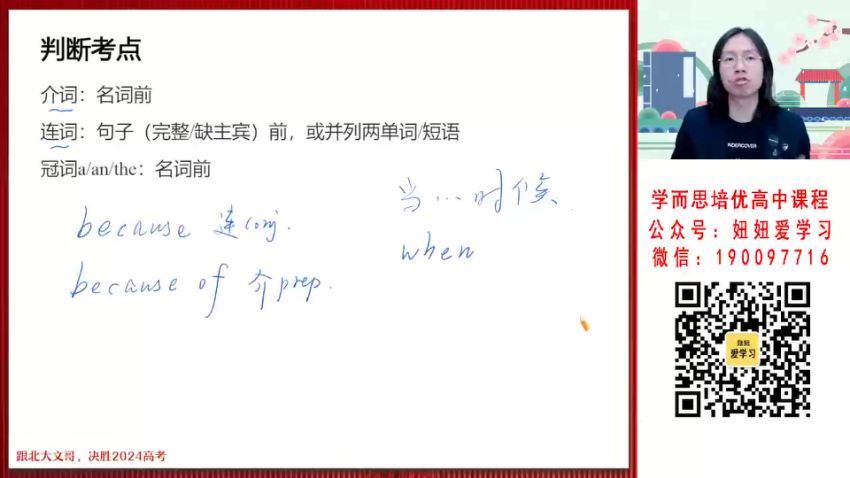 判断考点
介词：名词前
连词：句子（完整/缺主宾）前，或并列两单词/短语
冠词a/an/the：名词前
because 连conj.
because of 介prep.
当...时候
when
跟北大文哥，决胜2024高考
UNDERCOVER
学而思培优高中课程
公众号：妞妞爱学习
微信：190097716
妞妞
爱学习